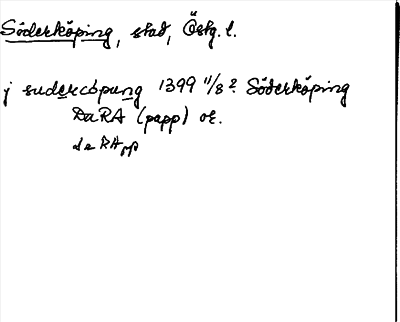 Söderköping, stad, Östg. l.
j sudercöpung 1399 11/8 ? Söderköping
DaRA (papp) or.
da RApp